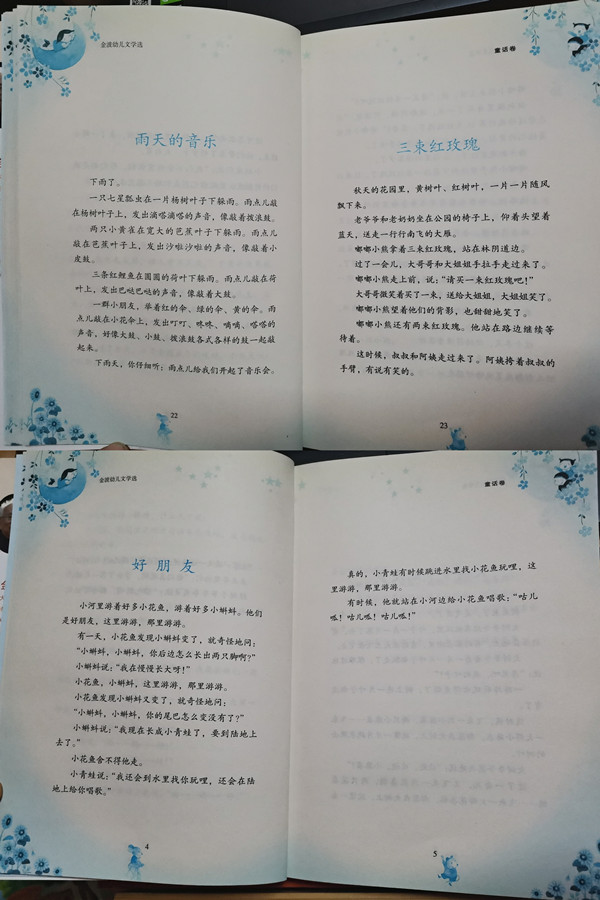 金波幼儿文学选
雨天的音乐
下雨了。
一只七星瓢虫在一片杨树叶子下躲雨。雨点儿敲
在杨树叶子上，发出滴嗒滴嗒的声音，像敲着拨浪鼓。
两只小黄雀在宽大的芭蕉叶子下躲雨。雨点儿敲
在芭蕉叶子上，发出沙啦沙啦的声音，像敲着小
皮鼓。
三条红鲤鱼在圆圆的荷叶下躲雨。雨点儿敲在荷
叶上，发出巴哒巴哒的声音，像敲着大鼓。
一群小朋友，举着红的伞、绿的伞、黄的伞。雨
点儿敲在小花伞上，发出叮叮、咚咚、嘀嘀、嗒嗒的
声音、好像大鼓、小鼓、拨浪鼓各式各样的鼓一起敲
起来。
下雨天，你仔细听：雨点儿给我们开起了音乐会。
22
童话卷
三束红玫瑰
秋天的花园里，黄树叶、红树叶，一片一片随风
飘下来。
老爷爷和老奶奶坐在公园的椅子上，仰着头望着
蓝天，送走一行行南飞的大雁。
嘟嘟小熊拿着三束红玫瑰，站在林阴道边。
过了一会儿，大哥哥和大姐姐手拉手走过来了。
嘟嘟小熊走上前，说：“请买一束红玫瑰吧！”
大哥哥微笑着买了一束，送给大姐姐，大姐姐笑了。
嘟嘟小熊望着他们的背影，也甜甜地笑了。
嘟嘟小熊还有两束红玫瑰。他站在路边继续等
待着。
这时候，叔叔和阿姨走过来了。阿姨挎着叔叔的
手臂，有说有笑的。
23
金波幼儿文学选
好朋友
小河里游着好多小花鱼，游着好多小蝌蚪。他们
是好朋友，这里游游，那里游游。
有一天，小花鱼发现小蝌蚪变了，就奇怪地问：
“小蝌蚪，小蝌蚪，你后边怎么长出两只脚啊？”
小蝌蚪说：“我在慢慢长大呀！”
小花鱼，小蝌蚪，这里游游，那里游游。
小花鱼发现小蝌蚪又变了，就奇怪地问：
“小蝌蚪，小蝌蚪，你的尾巴怎么变没有了？”
小蝌蚪说：“我现在长成小青蛙了，要到陆地上
去了。”
小花鱼舍不得他走。
小青蛙说：“我还会到水里找你玩哩，还会在陆
地上给你唱歌。”
4
童话卷
真的，小青蛙有时候跳进水里找小花鱼玩哩，这
里游游，那里游游。
有时候，他就站在小河边给小花鱼唱歌：“咕儿
呱！咕儿呱！咕儿呱！”
5